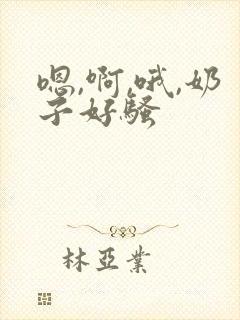 嗯,啊,哦,奶
子好骚
林亚業